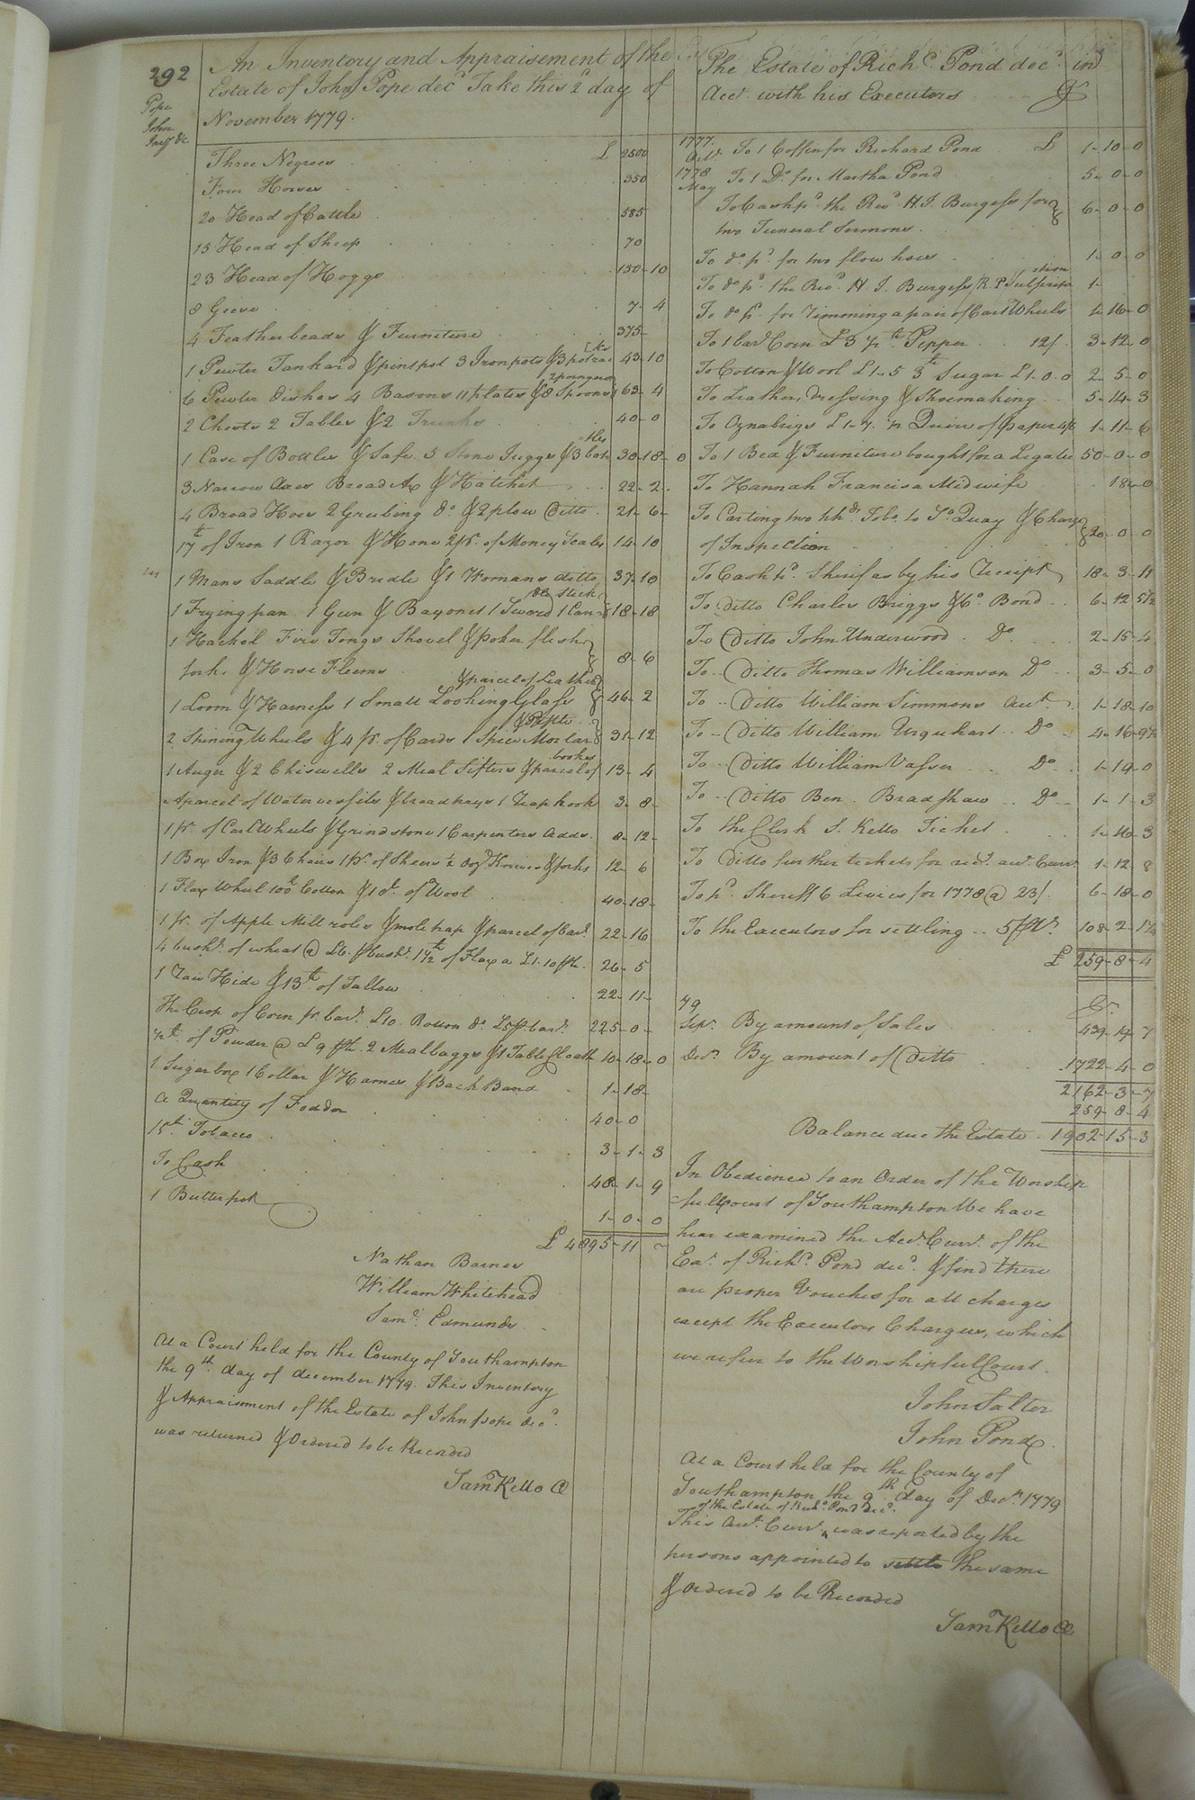 292
Pope
John
Invy &c
An Inventory and Appraisement of the
Estate of John Pope decd. Take this 2d day of
November 1779.
Three Negroes £ 2500
Four Horses 350
20 Head of Cattle 585
15 Head of Sheep 70
23 Head of Hoggs 130-10
8 Geese 7-4
4 Featherbeads & Furniture 375-
1 Pewter Tankard & pintpot 3 Ironpots & 3 potrac ks 43-10
6 Pewter Dishes 4 Basons 11 plates & 8 Spoons 63-4
2 Chests 2 Tables & 2 Trunks 40-0
1 Case of Bottles & Safe 5 Stone Juggs & 3 bot tles 30-18-0
3 Narrow Axes Broad Ax & Hatchet 22-2-
4 Broad Hoes 2 Grubing do. & 2 plow Ditto 21-6-
17 lb of Iron 1 Razor & Hone 2 pr. of Money Scales 14-10
1 Mans Saddle & Bridle & 1 Womans ditto 37-10
1 Fryingpan 1 Gun & Bayonet 1 Sword 1 Can- 18-18
1 Hackel Fire Tongs Shovel & poker flesh
fork & Horse Fleems 8-6
& parcel of Leather
1 Loom & Harness 1 Small Looking Glass 46-2
& Pestle
2 Spining Wheels & 4 pr. of Cards 1 Spice Mortar 31-12
books
1 Auger & 2 Chiswells 2 Meal Sifters & parcel of 13-4
A parcel of Water vessils & bread trays 1 Reap hook 3-8-
1 pr. of Cart Wheels & Grindstone 1 Carpenters Adds. 8-12-
1 Box Iron & 3 Chairs 1 pr. of Sheers ½ Doz Knives & forks 12-6
1 Flax Wheel 100 lb Cotton & 10 lb. of Wool 40-18-
1 pr. of Apple Mill roles & mole trap & parcel of 22-16
4 bushs. of wheat @ £6. p bush. 17½ lb of Flax a £1.10 p lb. 26-5
1 Raw Hide & 13 lb of Tallow 22-11-
The Crop of Corn pr. barl. £10 Rotten do £5 p barl. 225-0-
½ lb. of Powder @ £9 p lb. 2 Mealbaggs & 1 Table Cloath 10-18-0
1 Sugarbox 1 Collar & Hames & Back Band 1-18-
A Quantity of Fodder 40-0
15 lb Tobacco 3-1-3
To Cash 48-1-9
1 Butterpot 1-0-0
£ 4895-11-
Nathan Barnes
William Whitehead
Saml. Edmunds
At a Court held for the County of Southampton
the 9th day of december 1779. This Inventory
& Appraisment of the Estate of John pope decd.
was returned & Ordered to be Recorded
Saml Kello C
The Estate of Richd. Pond decd. in
Acct. with his Executors Dr
1777.
To 1 Coffin for Richard Pond £ 1-10-0
1778
May To 1 Do. for Martha Pond 5-0-0
To Cash pd. the Revd. H. J. Burgess for
two Funeral Sermons 6-0-0
To do pd. for two flow hoes 1-0-0
To do pd. the Revd. H J. Burgess 1-
To do pd. for Timming a pair of Cart Wheels 1-16-0
To 1 barl Corn £3 ½ lb Pepper 12/. 3-12-0
To Cotton & Wool £1-5 3 lb Sugar £1-0-0 2-5-0
To Leather, Dressing & Shoemaking 5-14-3
To Oznabrigs £1-7. ½ Quire of paper 4/6 1-11-6
To 1 Bed & Furniture bought for a Legatee 50-0-0
To Hannah Francis a Midwife 18-0
To Carting two hhds Tobo. to Quay & Charge
of Inspection 20-0-0
To Cash pd. Sherif as by his Receipt 18-3-11
To Ditto Charles Briggs & Co. Bond 6-12-5½
To Ditto John Underwood Do 2-15-4
To Ditto Thomas Williamson Do 3-5-0
To Ditto William Simmons Acct. 1-18-10
To Ditto William Urquhart Do 4-16-9½
To Ditto William Vasser Do 1-19-0
To Ditto Ben. Bradshaw Do 1-1-3
To the Clerk S. Kello Ticket 1-16-3
To Ditto further tickets for acct. Curr. 1-12-8
To pd. Sheriff 6 Levies for 1778 @ 23/. 6-18-0
To the Executors for settling 5 p Ct. 108-2-1½
£ 259-8-4
79 Cr
By amount of Sales 439-19-7
Decr. By amount of Ditto 1722-4-0
2162-3-7
259-8-4
Balance due the Estate 1902-15-3
In Obedience to an Order of the Worship
full Court of Southampton We have
hear examined the Acct. Curr. of the
Est. of Richd. Pond decd. & find there
are proper Vouches for all charges
except the Executors Charges, which
we refer to the Worshipful Court.
John Salter
John Pond.
At a Court held for the County of
Southampton the 9th day of Decr. 1779
of the Estate of Richd Pond decd.
This Acct. Curr. was reported by the
persons appointed to settle the same
& Ordered to be Recorded
Saml Kello C